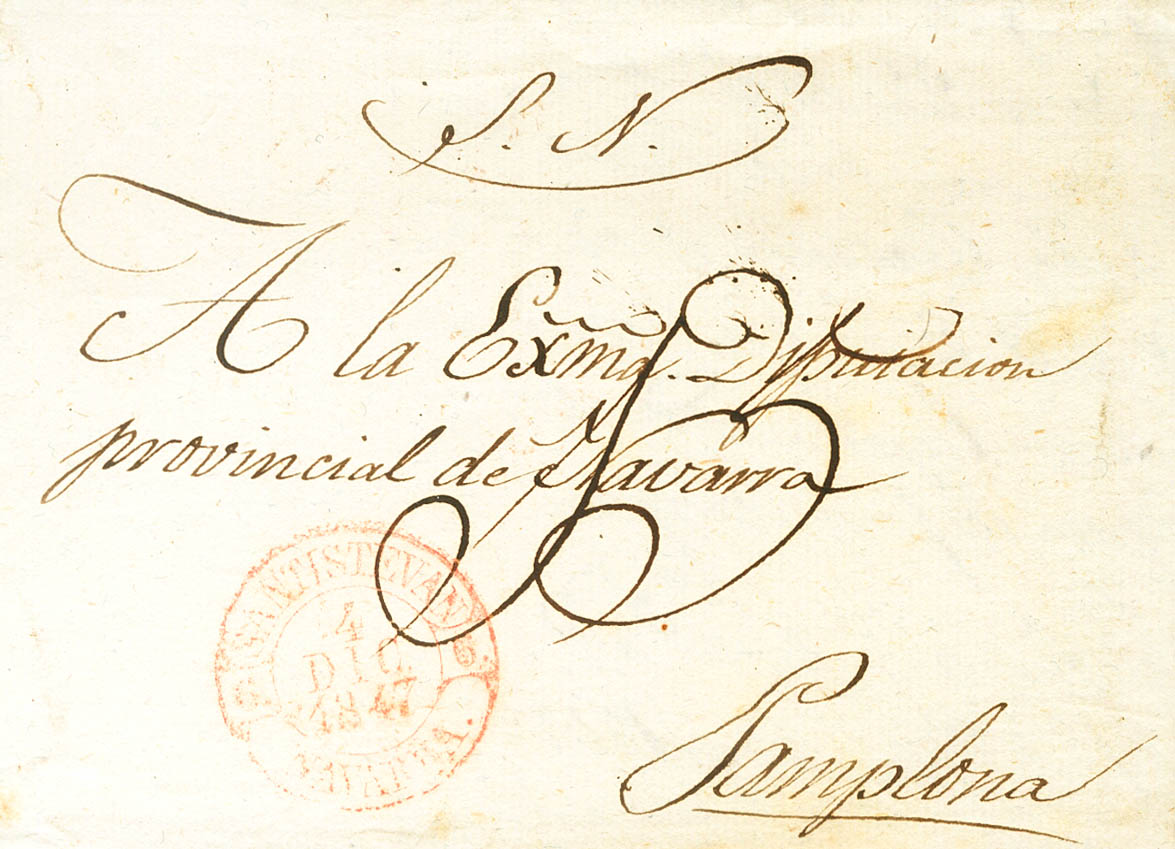 S. N.
A la Exma. Diputacion
provincial de Navarra
SANTISTEVAN
4
DIC
1847
NAVARRA.
Pamplona